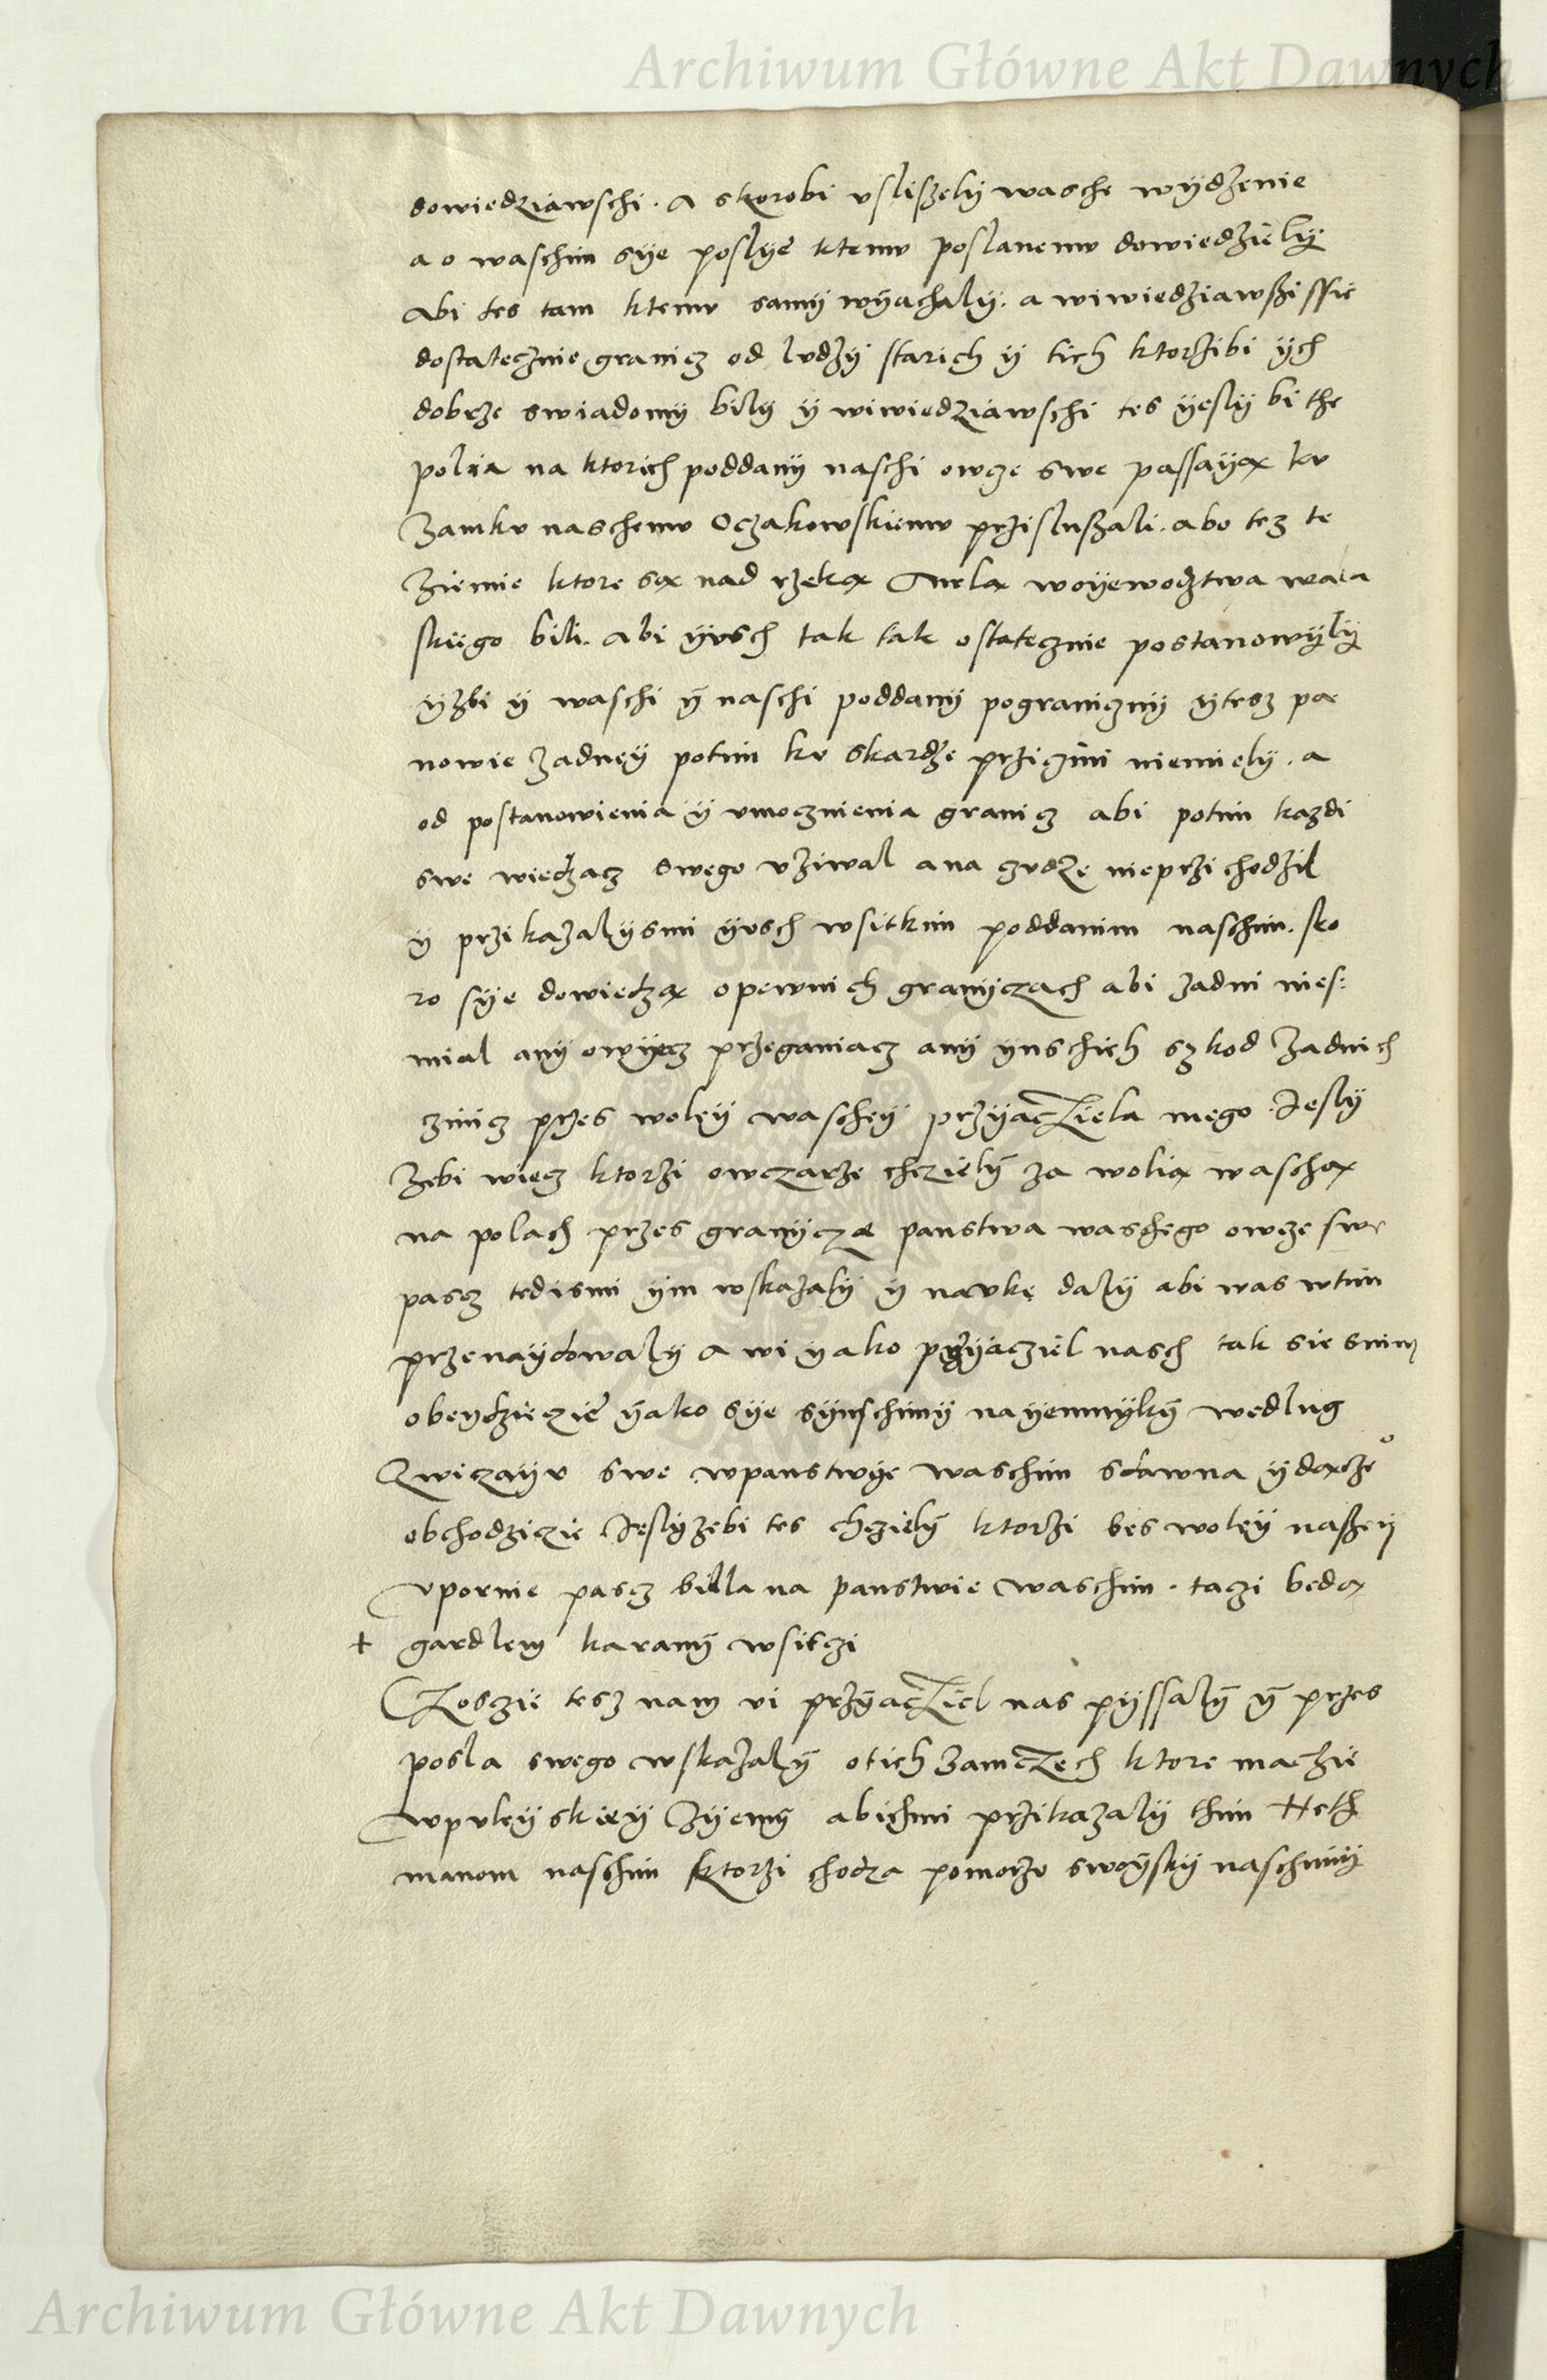 Archiwum Główne Akt Dawnych
dowiedziawschi. A skorobi vslißely wasche wydzenie
a o waschim sye poslye ktemv poslanemv dowiedziely
Abi tes tam ktemv samy wyachaly. a wiwiedziawßi ssie
dostatecznie granicz od lvdzy starich y tich ktorzibi ych
dobrze swiadomy bily y wiwiedziawschi tes yesly bi the
polia na ktorich poddany naschi owcze swe passayą kv
Zamkv naschemv Oczakowskiemv przislußali. abo tez te
Ziemie ktore są nad rzeką woyewodztwa wala
skiego bili. Abi yvsch tak tak ostatecznie postanowyly
yzbi y waschi y naschi poddany pograniczny ytesz pa
nowie zadney potim kv skardze prziczini niemiely. a
od postanowienia y vmocznienia granicz abi potim kazdi
swe wiedzacz swego vziwal a na cvdze nieprzichodzil
y przikazalysmi yvsch wsitkim poddanim naschim. sko
ro sye dowiedzą opewnich granyczach abi zadni nies:
mial any owyecz przeganiacz any ynschich szkod zadnich
zinicz przes woley waschey przyacziela mego. Jesly
Zebi wiecz ktorzi owczarze chcziely za wolią waschą
na polach przes granyczą panstwa waschego owcze swe
pascz tedismi ym wskazaly y navkę daly abi was wtim
przenaydowaly a wi yako przyacziel nasch tak sie snimi
obeydziczie yako sye synschimy nayemnyky wedlug
Zwiczayv swe wpanstwye waschim sdawna ydącze
obchodziczie Jeslyzebi tes chcziely ktorzi bes woley naßey
vpornie pascz bidla na panstwie waschim. taczi bedą
+ gardlem karany wsitczi
Czosczie tesz nam vi przyacziel nas pyssaly y przes
posla swego wskazaly otich zamczech ktore maczie
wpvleyskiey Zyemy abichmi przikazaly thim Heth
manom naschim ktorzi chodza pomorzv swoysky naschimy
Archiwum Główne Akt Dawnych